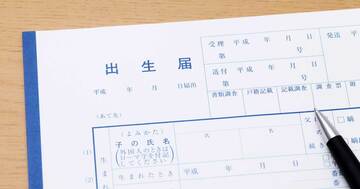 出生届
平成 年 月 日届出
(あて先)
受理 平成 年 月 日
第 号
送付 平成 年 月 日
第 号
発送
書類調査 戸籍記載 記載調査 調査票
(1)
生
(よみかた)
子の氏名
外国人のときは
ローマ字を付記
してください
氏
生まれたとき
平成